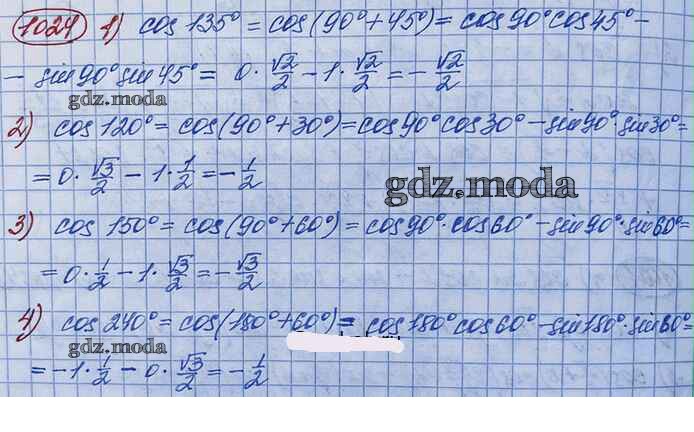 1024 1) cos 135° = cos(90° + 45°) = cos 90° cos 45° -
- sin 90° sin 45° = 0 · √2/2 - 1 · √2/2 = - √2/2
gdz.moda
2) cos 120° = cos(90° + 30°) = cos 90° cos 30° - sin 90° · sin 30° =
= 0 · √3/2 - 1 · 1/2 = - 1/2
gdz.moda
3) cos 150° = cos(90° + 60°) = cos 90° · cos 60° - sin 90° · sin 60° =
= 0 · 1/2 - 1 · √3/2 = - √3/2
4) cos 240° = cos(180° + 60°) = cos 180° cos 60° - sin 180° · sin 60° =
gdz.moda
= -1 · 1/2 - 0 · √3/2 = - 1/2